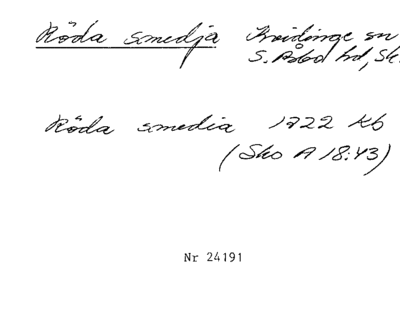 Röda smedja Kvidinge sn
S. Åsbo hd, Sk.
Röda smedia 1722 Kb
(Sko A 18:43)
Nr 24191